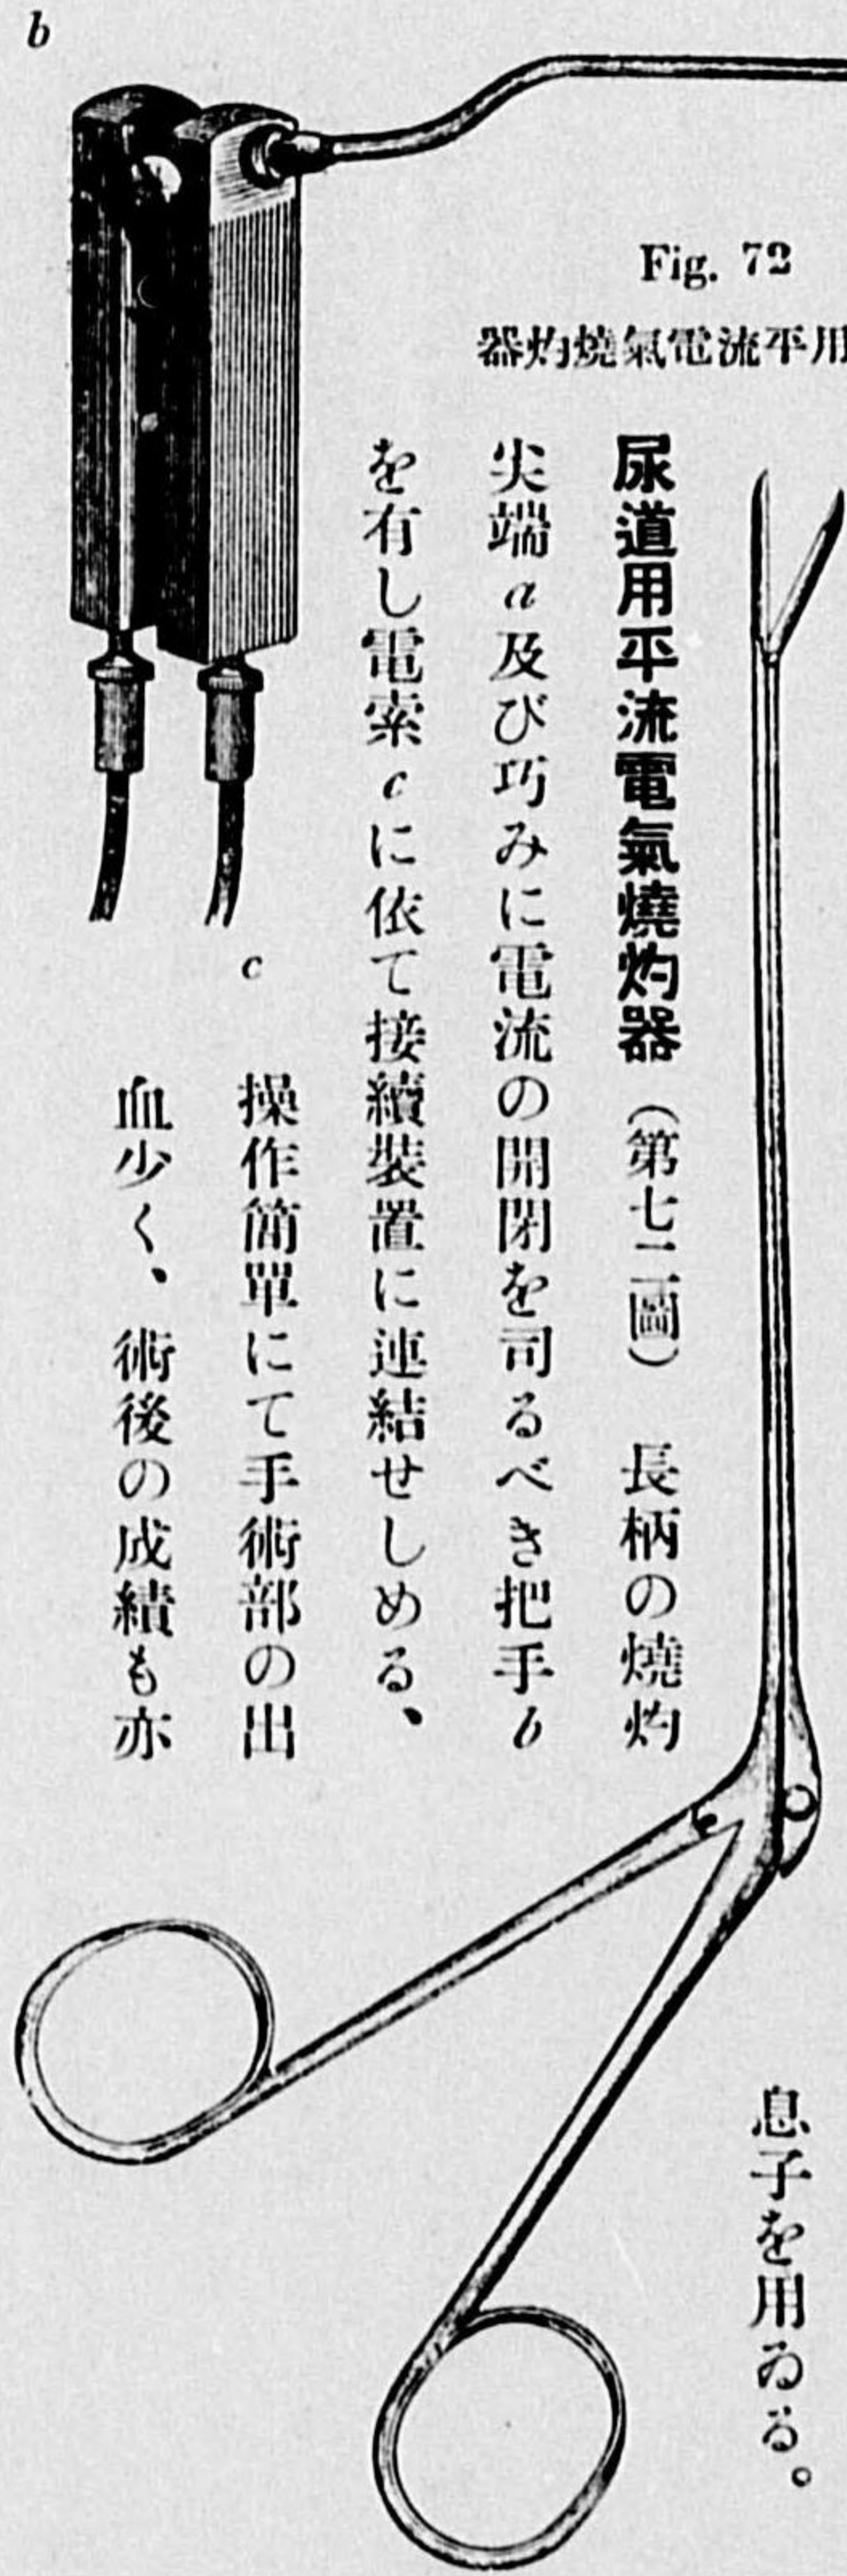 息子を用ゐる。
Fig. 72
器灼燒氣電流平用
尿道用平流電氣燒灼器（第七二圖）　長柄の燒灼
尖端a及び巧みに電流の開閉を司るべき把手b
を有し電索cに依て接續裝置に連結せしめる、
操作簡單にて手術部の出
血少く、術後の成績も亦
b
c